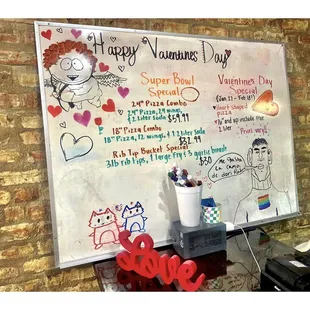 Happy Valentines Day
Super Bowl
Special
24" Pizza Combo
24" Pizza, 24 wings,
2 liter soda
$59.99
18" Pizza Combo
18" Pizza, 12 wings, + 1 2 liter Soda
$32.99
Rib Tip Bucket Special
3lb rib tips, 1 large fry + 3 garlic breads
$30
Valentine's Day
Special
heart shaped
pizza
2 liter
Love